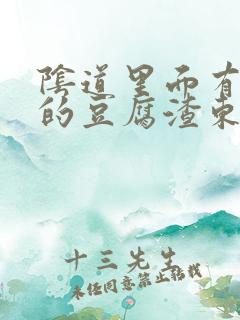 陰道里而有
的豆腐渣東
十三先生
未经同意禁止转载